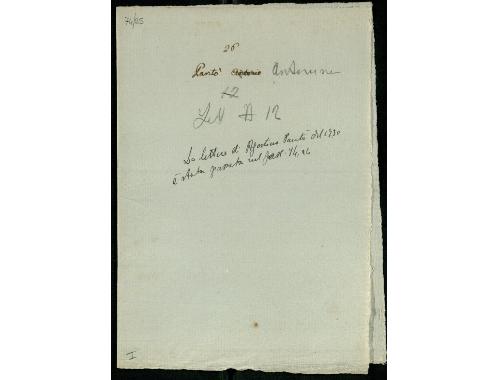 74/25
26
Pantò Antonino
12
Lett A 12
La lettera di Agostino Pantò del 1730
è stata passata nel fasc. 74,26
I